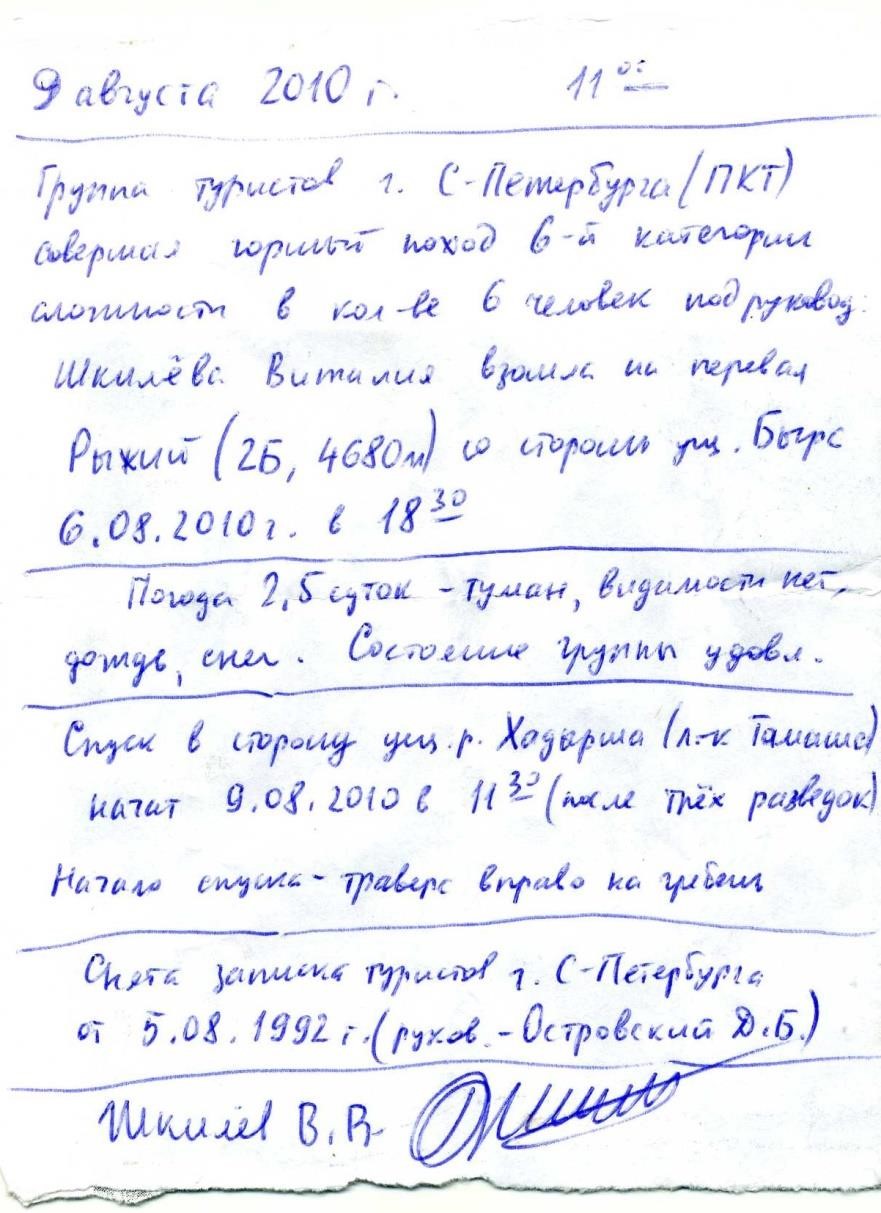 9 августа 2010 г. 11 00
Группа туристов г. С-Петербурга (ПКТ)
совершая горный поход 6-й категории
сложности в кол-ве 6 человек под руковод.
Шкилёва Виталия взошла на перевал
Рыжий (2Б, 4680м) со стороны ущ. Бырс
6.08.2010г. в 18 30
Погода 2,5 суток - туман, видимости нет,
дождь, снег. Состояние группы удовл.
Спуск в сторону ущ. р. Хадырша (л-к Тамаша)
начат 9.08.2010 в 11 30 (после трёх разведок)
Начало спуска - траверс вправо на гребень
Снята записка туристов г. С-Петербурга
от 5.08.1992 г. (руков. - Островский Д.Б.)
Шкилёв В.В.